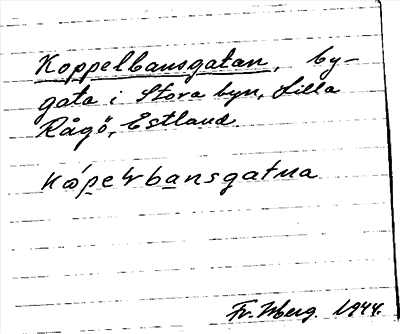 Koppelbansgatan, by-
gata i Stora byn, Lilla
Rågö, Estland.
kǿpelrbansgatna
Fr. Wberg. 1944.